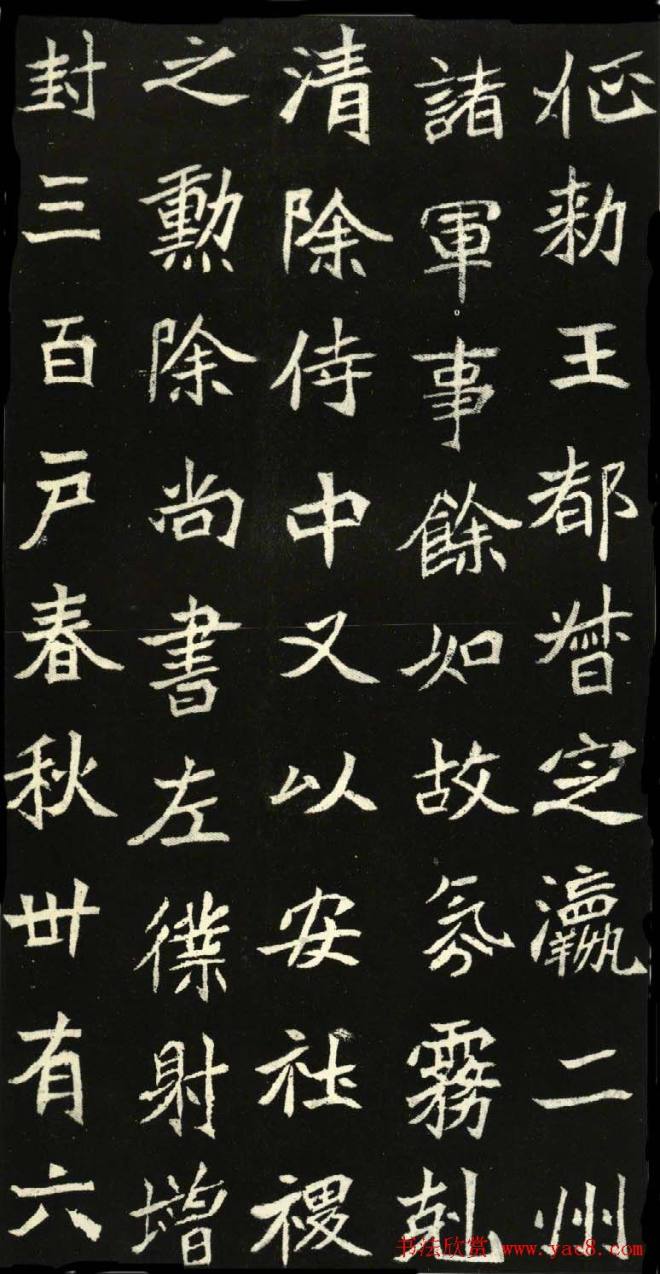 征勅王都督定瀛二州
諸軍事餘如故氛霧剋
清除侍中又以安社稷
之勳除尚書左僕射增
封三百戶春秋卅有六
书法欣赏 www.yac8.com